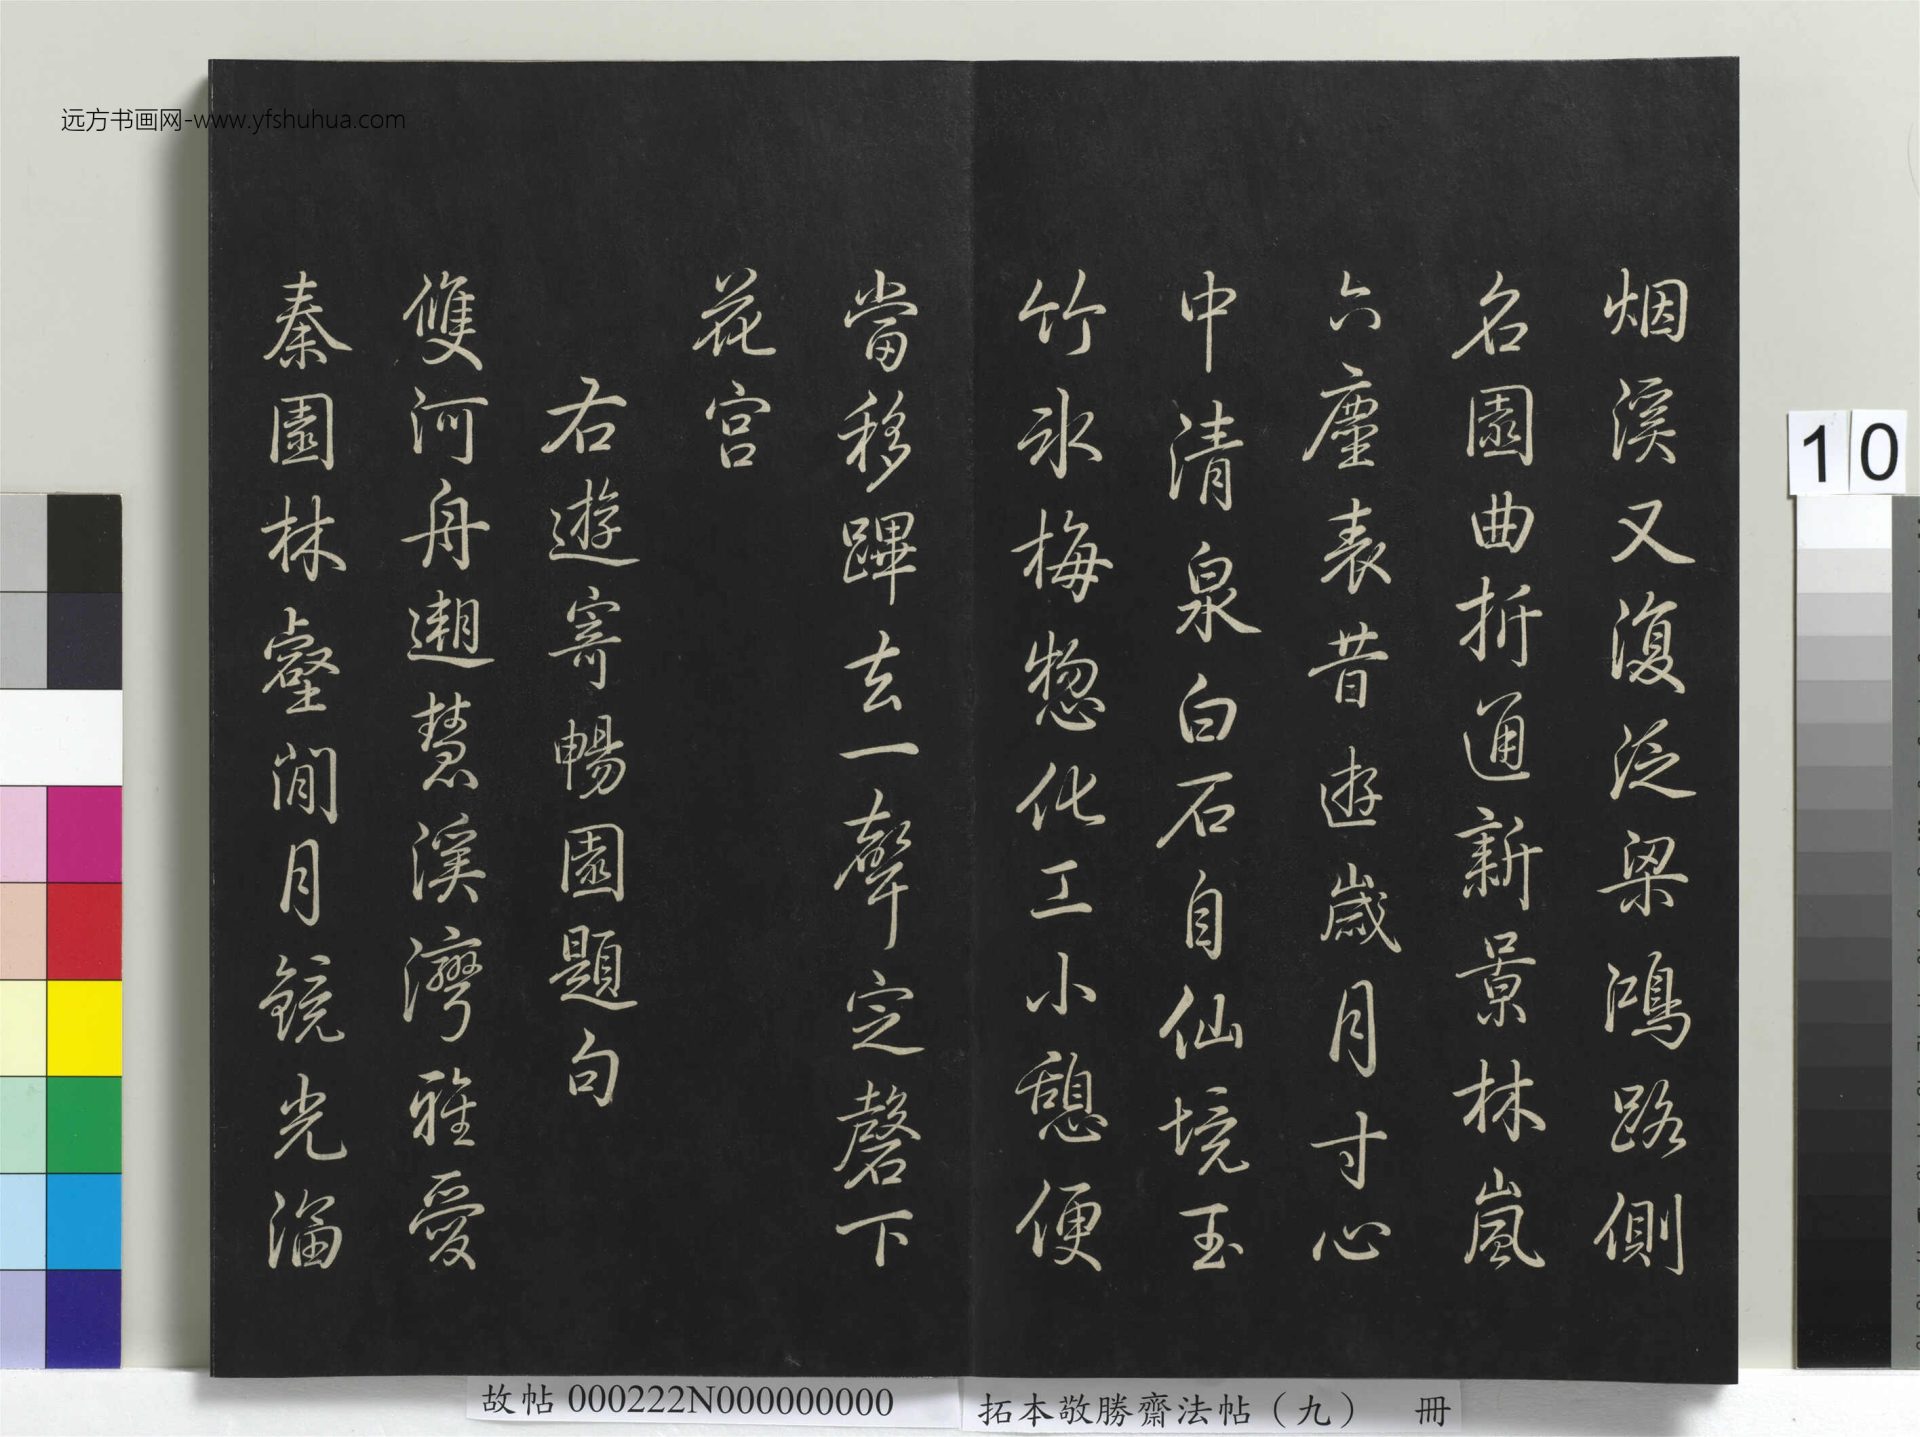 远方书画网-www.yfshuhua.com
烟溪又復泛梁鴻路側
名園曲折通新景林嵐
六塵表昔遊歲月寸心
中清泉白石自仙境玉
竹冰梅惣化工小憩便
當移蹕去一聲定磬下
花宮
右遊寄暢園題句
雙河舟遡慧溪灣雅愛
秦園林壑閒月鏡光淪
10
故帖 000222N000000000
拓本敬勝齋法帖（九） 冊